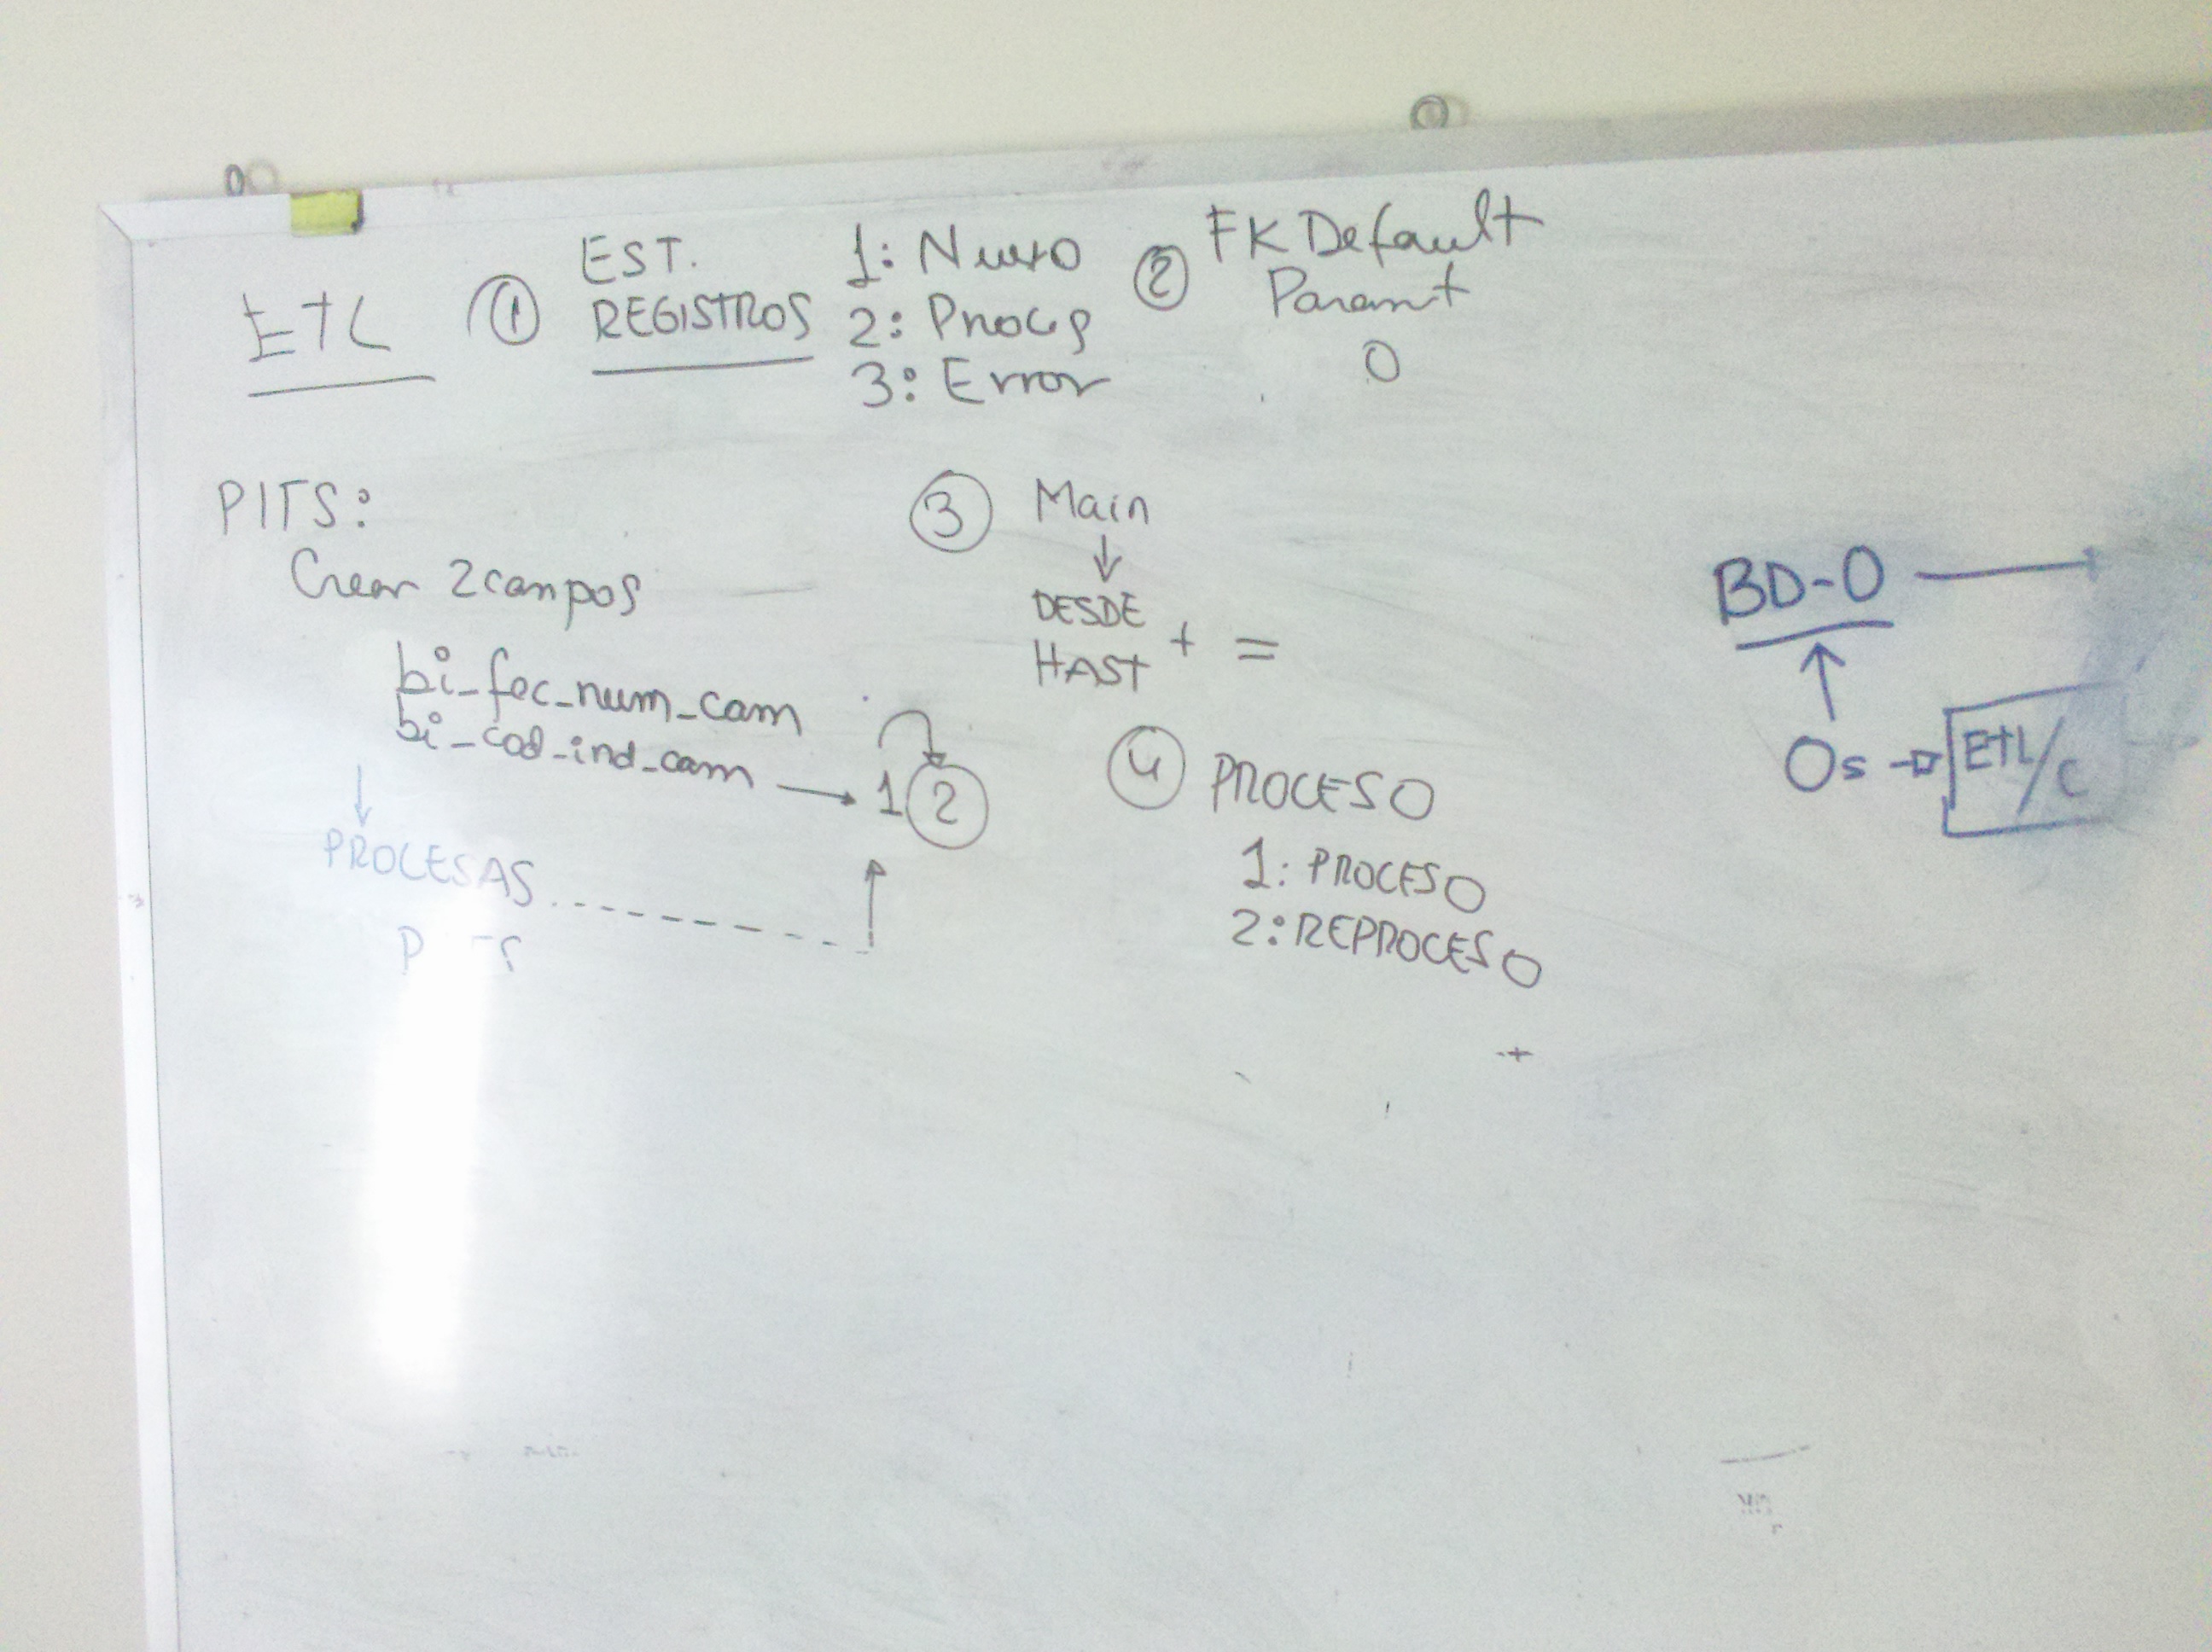 ETL
① EST.
REGISTROS
1: Nuevo
2: Proces
3: Error
② FK Default
Paramt
0
PITS:
Crear 2 campos
bi_fec_num_cam
bi_cod_ind_cam → 1 ②
↓
PROCESAS
③ Main
↓
DESDE
HAST + =
④ PROCESO
1: PROCESO
2: REPROCESO
BD-O
↑
Os → ETL/C